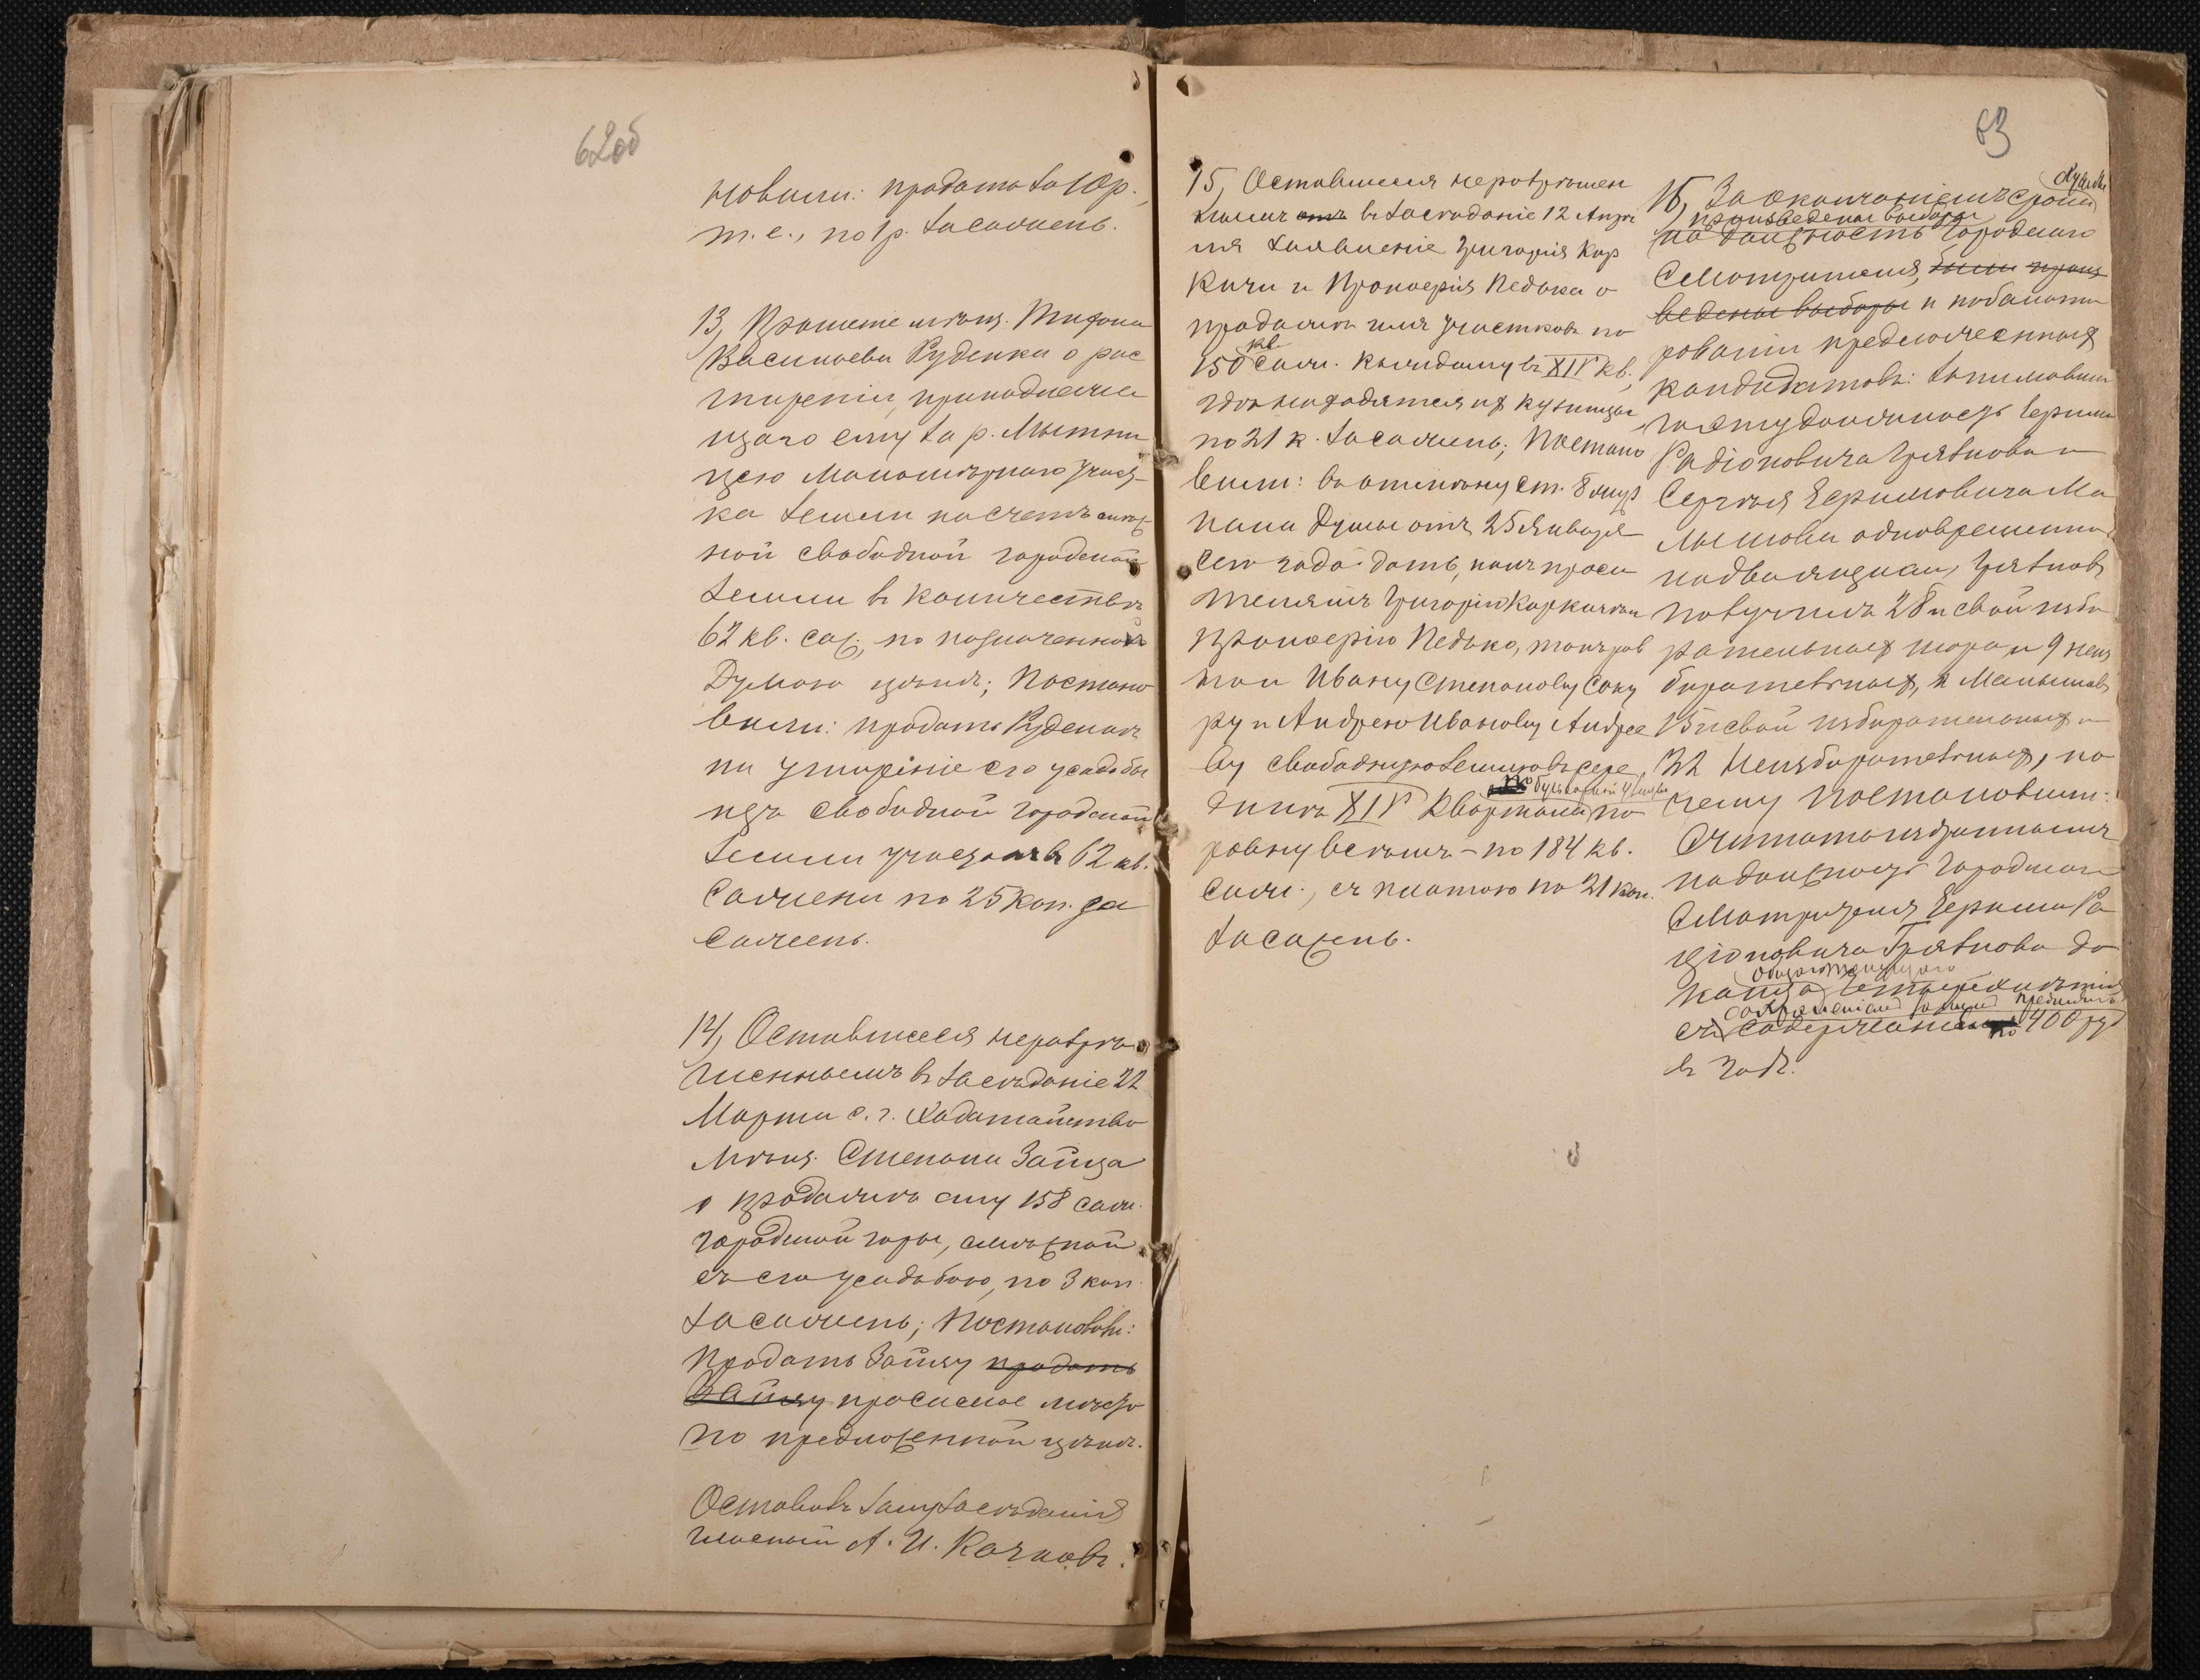 62об
новили: продать за 10 р.,
т. е., по 1 р. за сажень.
13, Прошение мѣщ. Тифона
Васильева Руденка о рас
ширеніи, принадлежа
щаго ему за р. Мытни
цею Маломѣрнаго участ-
ка земли на счетъ смеж
ной свободной городской
земли въ количествѣ
62 кв. саж., по назначенной
Думою цѣнѣ; Постано
вили: продать Руденкѣ
на уширеніе его усадьбы
изъ свободной городской
земли участокъ въ 62 кв.
сажени по 25 коп. за
сажень.
14, Оставшееся неразрѣ
шеннымъ въ засѣданіе 22
Марта с. г. ходатайство
мѣщ. Степана Зайца
о продажѣ ему 158 саж.
городской горы, смежной
съ его усадьбою, по 3 коп.
за сажень; Постановили:
Продать Зайцу продать
Зайцу просимое мѣсто
по предложенной цѣнѣ.
Оставилъ залу засѣданія
гласный А. И. Качковъ.
63
15, Оставшееся неразрѣшен
нымъ въ засѣданіе 12 Апрѣ
ля заявленіе Григорія Кар
качи и Прокофія Педька о
продажѣ имъ участковъ по
150 кв. саж. каждому въ XIV кв.,
гдѣ находятся их кузницы
по 21 к. за сажень; Постано
вили: въ отмѣну ст. 8 жур
нала Думы отъ 25 Января
сего года дать, какъ проси
телямъ Григорію Каркачѣ и
Прокофію Педько, такъ рав
но и Ивану Степанову Соку
ру и Андрею Иванову Андрее
ву свободную землю въ сере
динѣ XIV квартала по
ровну всѣмъ – по 184 кв.
саж., съ платою по 21 коп.
за сажень.
16, За окончаніемъ срока службы
произведены выборы
на должность Городского
Смотрителя, были произ
ведены выборы и по балоти
ровкѣ предложенныхъ
кандидатовъ: занимавша
го эту должность Герасима
Радіоновича Грязнова и
Сергѣя Ефимовича Ма
лышова одновременно
на два ящика, Грязновъ
получилъ 28 и свой изби
рательныхъ шара и 9 неиз
бирательныхъ, а Малышовъ
15 и свой избирательныхъ и
22 неизбирательныхъ, по
чему Постановили:
Считать избраннымъ
на должность Городского
Смотрителя Герасима Ра
діоновича Грязнова до
конца четырехлѣтія
съ содержаніемъ по 400 руб
въ годъ.